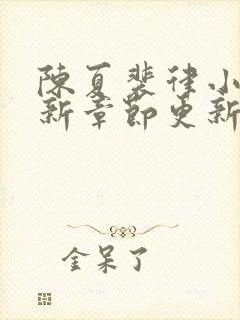 陳夏裴律小
新章節更新
金呆了